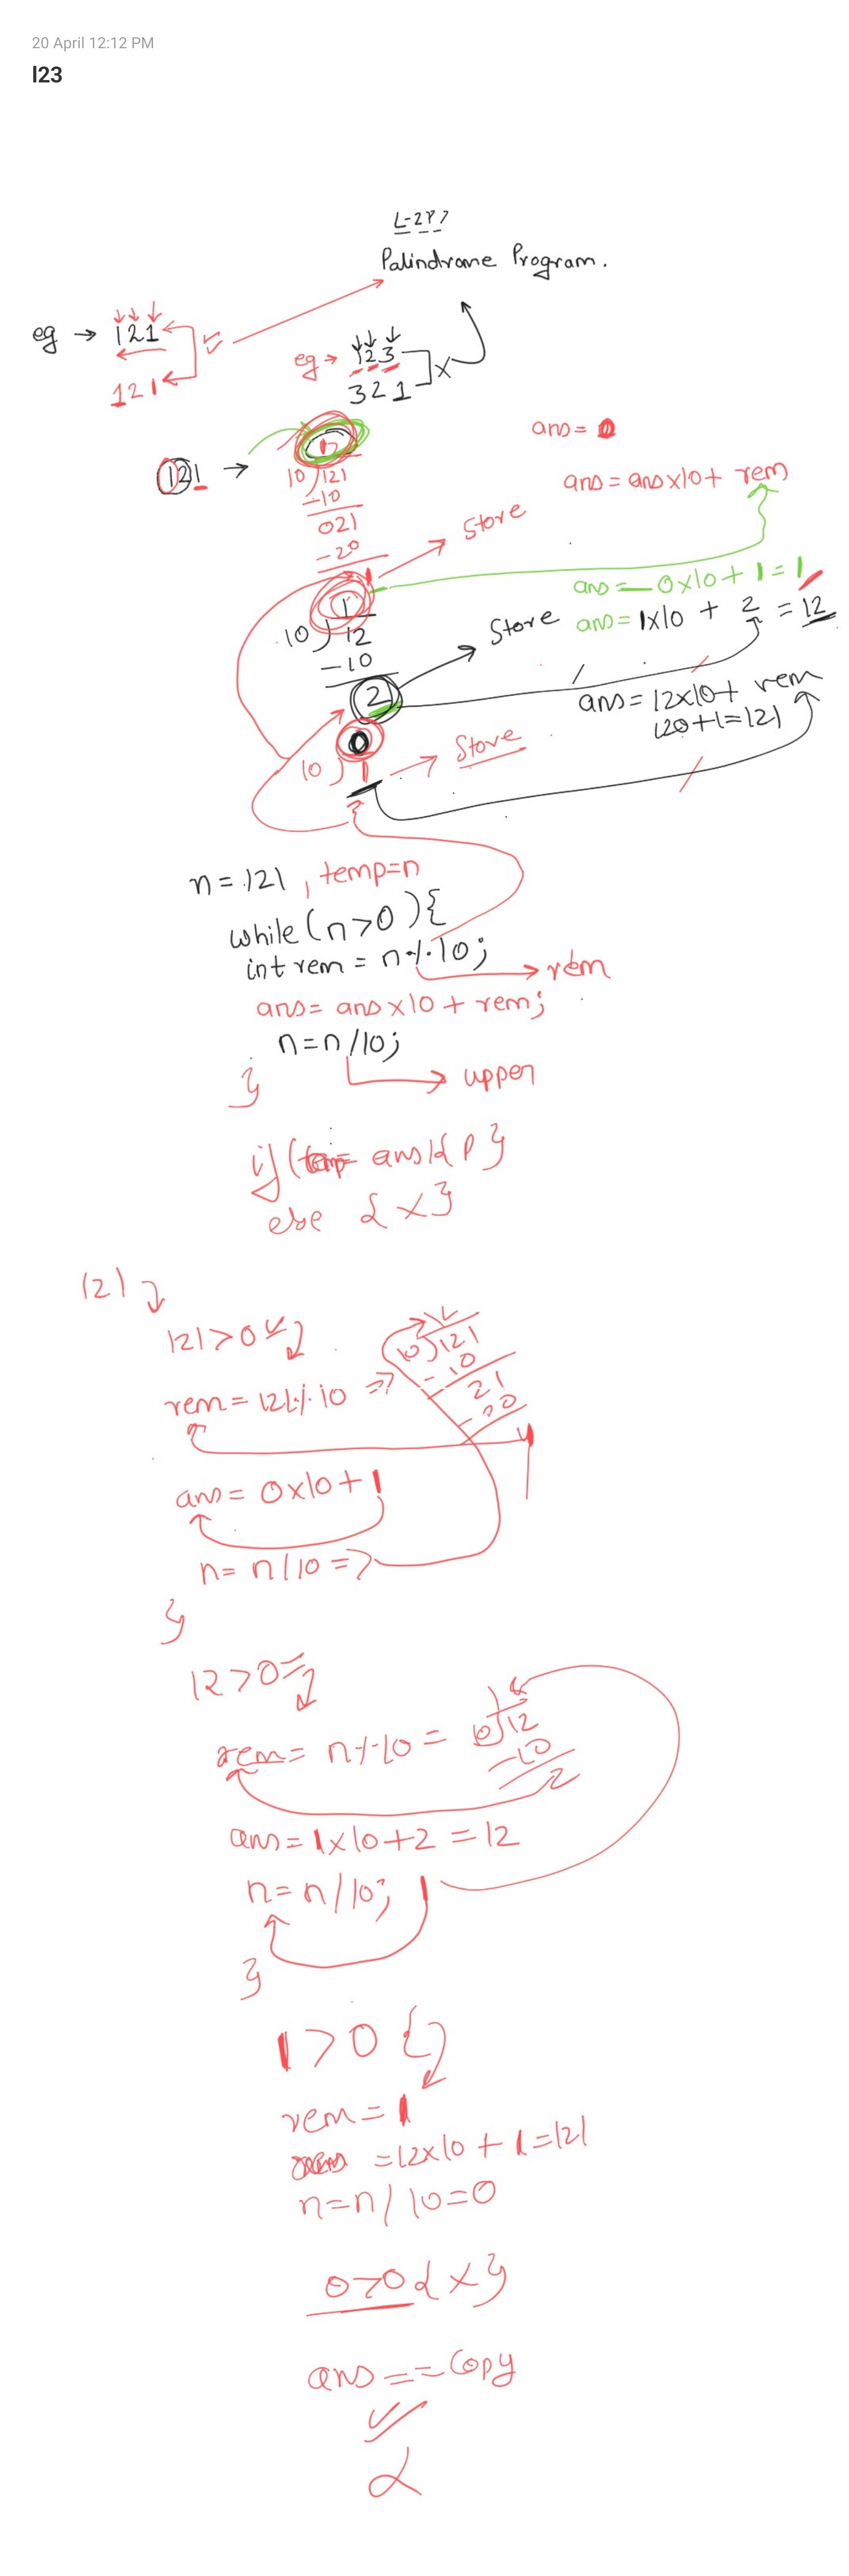 20 April 12:12 PM
l23
Palindrome Program.
eg → 121
121
eg → 123
321 ] x
ans = 0
121 →
12
10)121
-10
021
-20
1 → Store
ans = ans x 10 + rem
ans = 0x10 + 1 = 1
1
10)12
-10
2 → Store
ans = 1x10 + 2 = 12
ans = 12x10 + rem
120+1=121
0
10)1 → Store
n = 121, temp=n
while(n>0){
int rem = n%10; → rem
ans = ans x 10 + rem;
n=n/10; → upper
}
if(temp= ans){ P }
else { x }
121
121>0
rem = 121%10 ⇒
12
10)121
-10
21
-20
1
ans = 0x10+1
n= n/10 =>
}
12>0
rem = n%10 =
1
10)12
-10
2
ans = 1x10+2 = 12
n= n/10; 1
}
1>0 {
rem = 1
=12x10 + 1=121
n=n/10=0
0>0{x}
ans == Copy